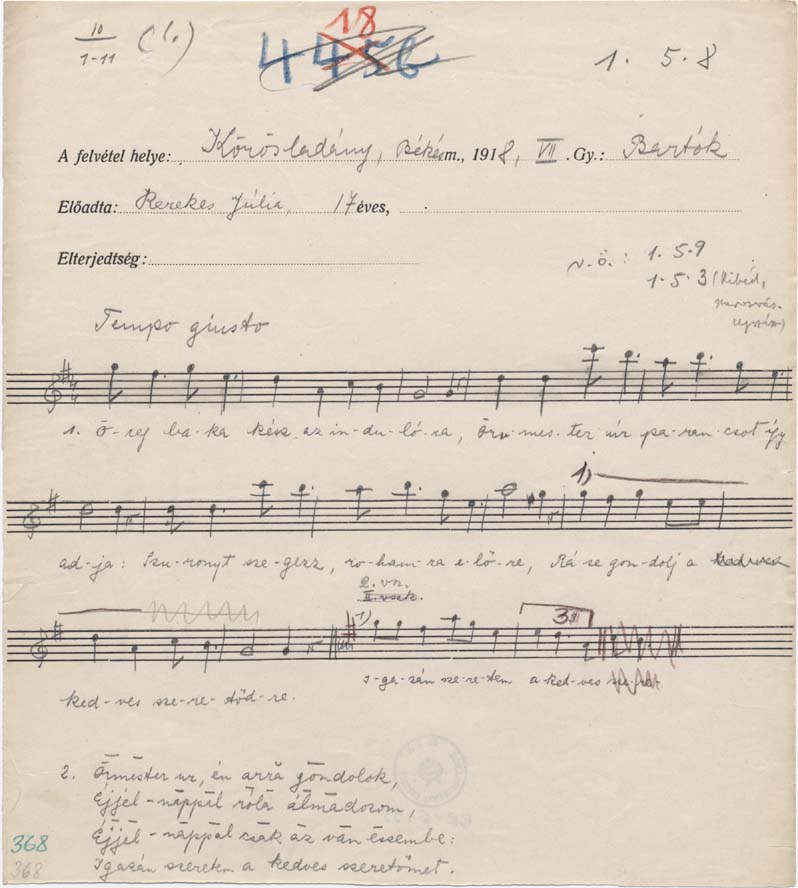 10
1-11 (l.)
18
4456
1. 5. 8
A felvétel helye: Körösladány, Békésm., 1918, VII. Gy.: Bartók
Előadta: Kerekes Júlia, 17 éves,
Elterjedtség:
v. ö.: 1. 5. 9
1. 5. 3 (Kibéd,
Tempo giusto
1. Ö-reg ba-ka kész az in-du-ló-ra, Őrm-mes-ter úr pa-ran-csot így
1)
ad-ja: Szu-ronyt sze-gezz, ro-ham-ra e-lő-re, Rá se gon-dolj a
2. vn.
II. vszk.
1)
3
ked-ves sze-re-tőd-re.
I-ga-zán sze-re-tem a ked-ves
2. Örmēster ur, ēn arrā gōndolok,
Ējjēl-nāppāl rōlā ālmādozom,
Ējjēl-nāppāl csāk āz vān ēssembe:
Igazán szeretem a kedves szeretőmet.
368
368